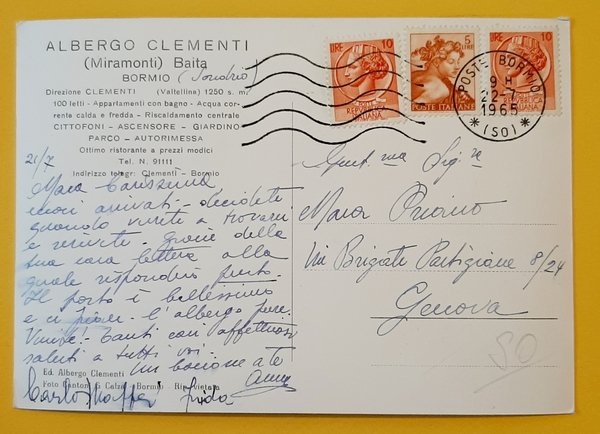 ALBERGO CLEMENTI
(Miramonti) Baita
BORMIO (Sondrio)
Direzione CLEMENTI (Valtellina) 1250 s. m.
100 letti - Appartamenti con bagno - Acqua cor-
rente calda e fredda - Riscaldamento centrale
CITTOFONI - ASCENSORE - GIARDINO
PARCO - AUTORIMESSA
Ottimo ristorante a prezzi modici
Tel. N. 91111
Indirizzo telegr: Clementi - Bormio
21/7
Mara Carissima,
eccoci arrivati - decidete
quando venite a trovarci
e venite. Grazie della
tua cara lettera alla
quale risponderò presto.
Il posto è bellissimo
e ci piace. L'albergo pure.
Venite. Tanti cari affettuosi
saluti a tutti voi.
Un bacione a te
Ed. Albergo Clementi
Foto Cantoni & Calzi - Bormio Rip. vietata
Carlo Frida
LIRE 10
REPUBBLICA
ITALIANA
5
LIRE
POSTE ITALIANE
LIRE 10
REPUBBLICA
ITALIANA
POSTE BORMIO
9 H
22-7
1965
* (SO) *
Gent.ma Sig.ra
Mara
Via Brigate Partigiane 8/24
Genova
50